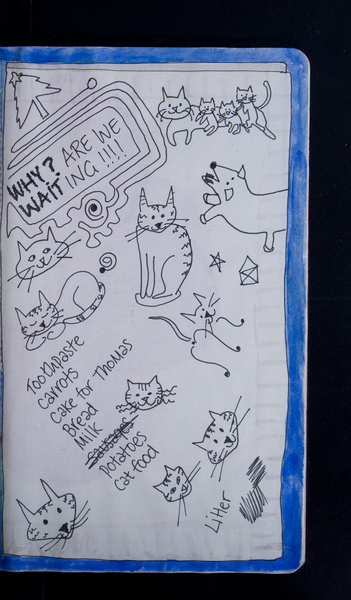 WHY? ARE WE
WAIT.ING !!!!
Toothpaste
Carrots
Cake for Thomas
Bread
Milk
Sausages
Potatoes
Cat food
Litter